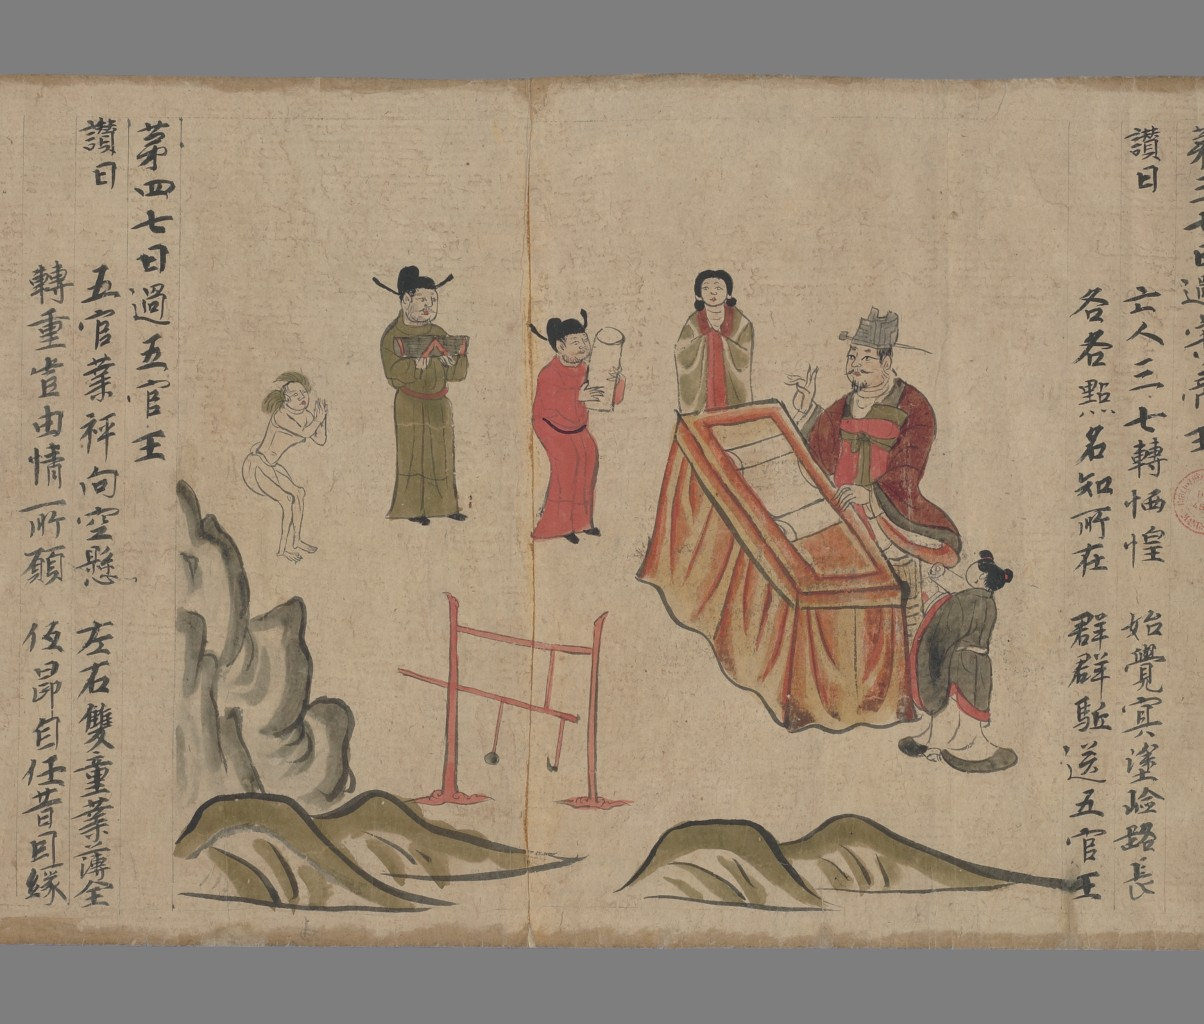 第三七日過宋帝王
讚曰
亡人三七轉恓惶 始覺冥塗嶮路長
各各點名知所在 群群駈送五官王
第四七日過五官王
讚曰
五官業秤向空懸 左右雙童業薄全
轉重豈由情所願 伍昂自任昔因緣